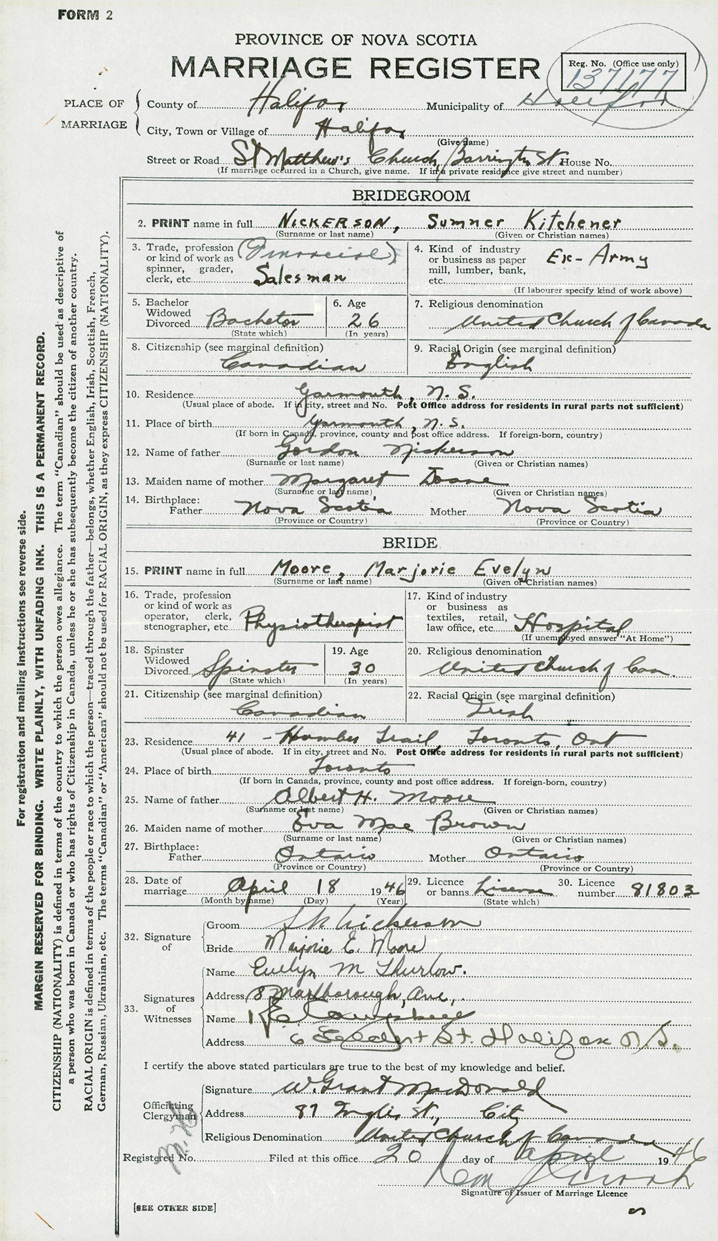 FORM 2
PROVINCE OF NOVA SCOTIA
MARRIAGE REGISTER
Reg. No. (Office use only)
137177
PLACE OF MARRIAGE
County of Halifax Municipality of Halifax
City, Town or Village of Halifax
(Give name)
Street or Road St Matthew's Church, Barrington St House No.
(If marriage occurred in a Church, give name. If in a private residence give street and number)
BRIDEGROOM
2. PRINT name in full NICKERSON, Sumner Kitchener
(Surname or last name) (Given or Christian names)
3. Trade, profession or kind of work as spinner, grader, clerk, etc. (Financial) Salesman
4. Kind of industry or business as paper mill, lumber, bank, etc. Ex-Army
(If labourer specify kind of work above)
5. Bachelor Widowed Divorced Bachelor
(State which)
6. Age 26
(In years)
7. Religious denomination United Church of Canada
8. Citizenship (see marginal definition) Canadian
9. Racial Origin (see marginal definition) English
10. Residence Yarmouth, N.S.
(Usual place of abode. If in city, street and No. Post Office address for residents in rural parts not sufficient)
11. Place of birth Yarmouth, N.S.
(If born in Canada, province, county and post office address. If foreign-born, country)
12. Name of father Gordon Nickerson
(Surname or last name) (Given or Christian names)
13. Maiden name of mother Margaret Doane
(Surname or last name) (Given or Christian names)
14. Birthplace: Father Nova Scotia Mother Nova Scotia
(Province or Country) (Province or Country)
BRIDE
15. PRINT name in full Moore, Marjorie Evelyn
(Surname or last name) (Given or Christian names)
16. Trade, profession or kind of work as operator, clerk, stenographer, etc. Physiotherapist
17. Kind of industry or business as textiles, retail, law office, etc. Hospital
(If unemployed answer "At Home")
18. Spinster Widowed Divorced Spinster
(State which)
19. Age 30
(In years)
20. Religious denomination United Church of Can.
21. Citizenship (see marginal definition) Canadian
22. Racial Origin (see marginal definition) Irish
23. Residence 41 - Humber Trail Toronto, Ont
(Usual place of abode. If in city, street and No. Post Office address for residents in rural parts not sufficient)
24. Place of birth Toronto
(If born in Canada, province, county and post office address. If foreign-born, country)
25. Name of father Albert H. Moore
(Surname or last name) (Given or Christian names)
26. Maiden name of mother Eva Mae Brown
(Surname or last name) (Given or Christian names)
27. Birthplace: Father Ontario Mother Ontario
(Province or Country) (Province or Country)
28. Date of marriage April 18 1946
(Month by name) (Day) (Year)
29. Licence or banns License
(State which)
30. Licence number 81803
32. Signature of
Groom S K Nickerson
Bride Marjorie E. Moore
33. Signatures of Witnesses
Name Evelyn M Thurlow.
Address 8 Marlborough Ave,.
Name
Address 6 St. Halifax N.S.
I certify the above stated particulars are true to the best of my knowledge and belief.
Officiating Clergyman
Signature W. Grant MacDonald
Address 87 Inglis St, City
Religious Denomination United Church of Canada
Registered No. Filed at this office 20 day of April 1946
Signature of Issuer of Marriage Licence
[SEE OTHER SIDE]
For registration and mailing instructions see reverse side.
MARGIN RESERVED FOR BINDING. WRITE PLAINLY, WITH UNFADING INK. THIS IS A PERMANENT RECORD.
CITIZENSHIP (NATIONALITY) is defined in terms of the country to which the person owes allegiance. The term "Canadian" should be used as descriptive of
a person who was born in Canada or who has rights of Citizenship in Canada, unless he or she has subsequently become the citizen of another country.
RACIAL ORIGIN is defined in terms of the people or race to which the person—traced through the father—belongs, whether English, Irish, Scottish, French,
German, Russian, Ukrainian, etc. The terms "Canadian" or "American" should not be used for RACIAL ORIGIN, as they express CITIZENSHIP (NATIONALITY).